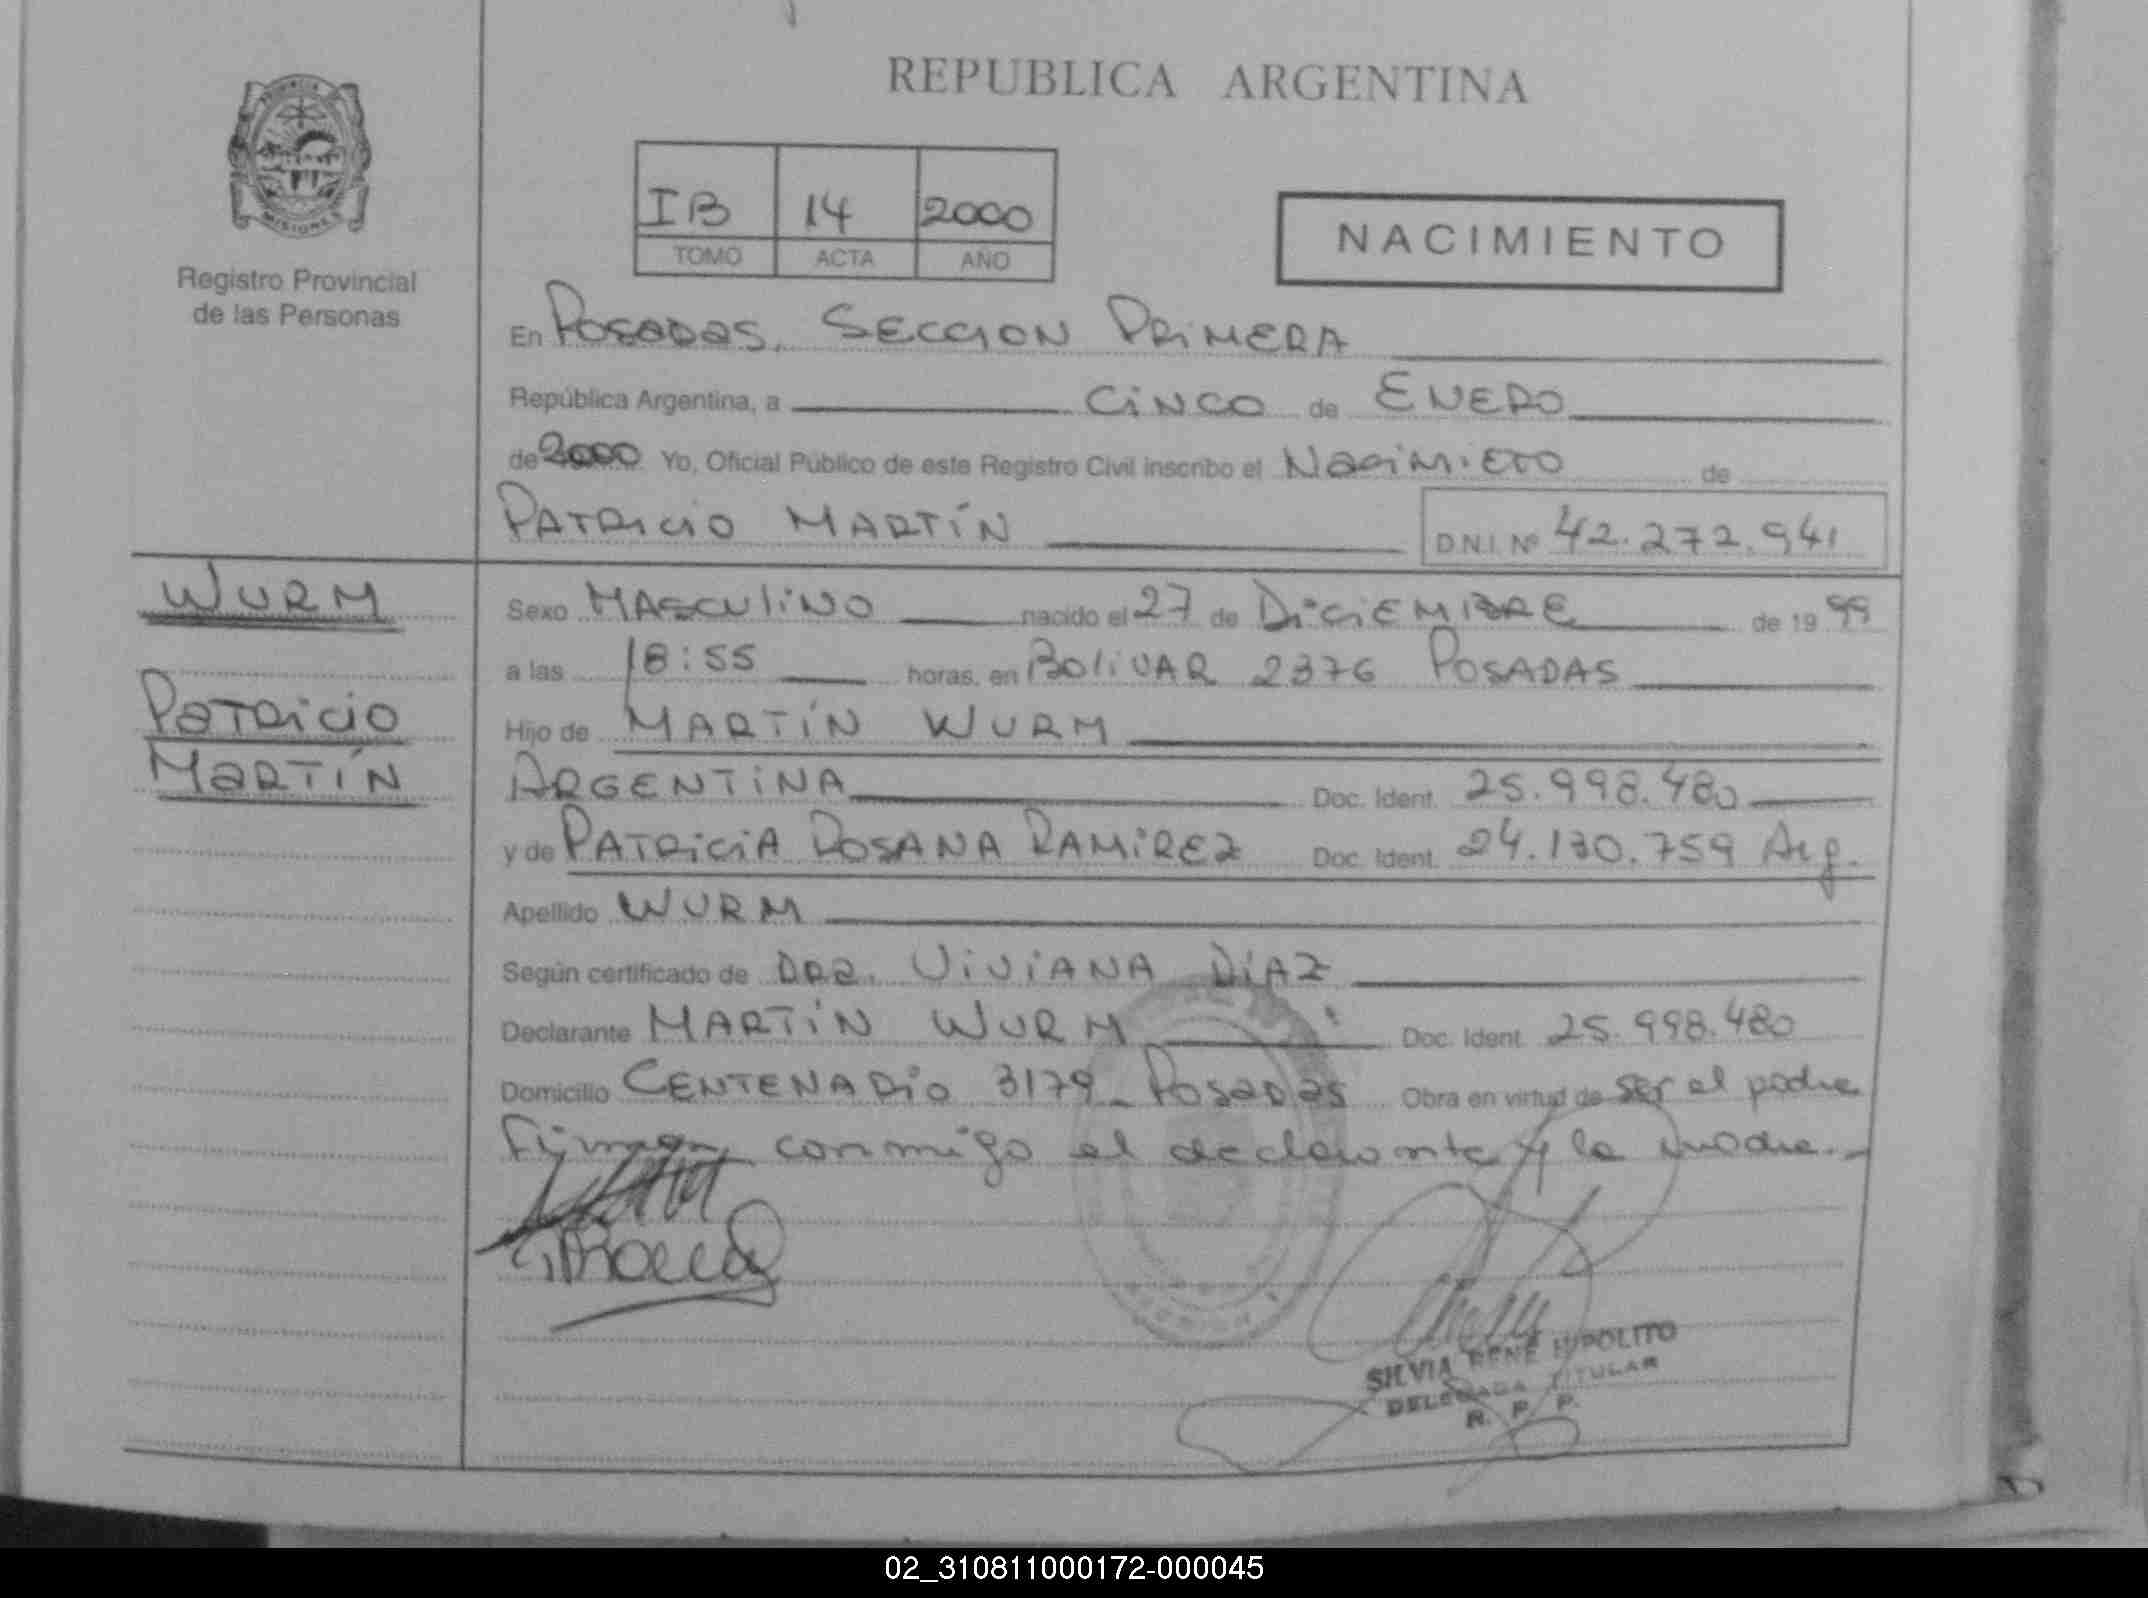 REPUBLICA ARGENTINA
IB 14 2000
TOMO ACTA AÑO
NACIMIENTO
MISIONES
Registro Provincial
de las Personas
En POSADAS, SECCION PRIMERA
República Argentina, a CINCO de ENERO
de 2000 Yo, Oficial Público de este Registro Civil inscribo el Nacimieto de
PATRICIO MARTÍN D.N.I. Nº 42.272.941
WURM
PATRICIO
MARTÍN
Sexo MASCULINO nacido el 27 de DICIEMBRE de 19 99
a las 18:55 horas, en BOLIVAR 2376 POSADAS
Hijo de MARTÍN WURM
ARGENTINA Doc. Ident. 25.998.480
y de PATRICIA ROSANA RAMIREZ Doc. Ident. 24.130.759 Arg.
Apellido WURM
Según certificado de DRA. VIVIANA DIAZ
Declarante MARTÍN WURM Doc. Ident. 25.998.480
Domicilio CENTENARIO 3179 - POSADAS Obra en virtud de ser el padre
Firman conmigo el declarante y la madre.-
SILVIA RENE HIPOLITO
DELEGADA TITULAR
R. P. P.
02_310811000172-000045